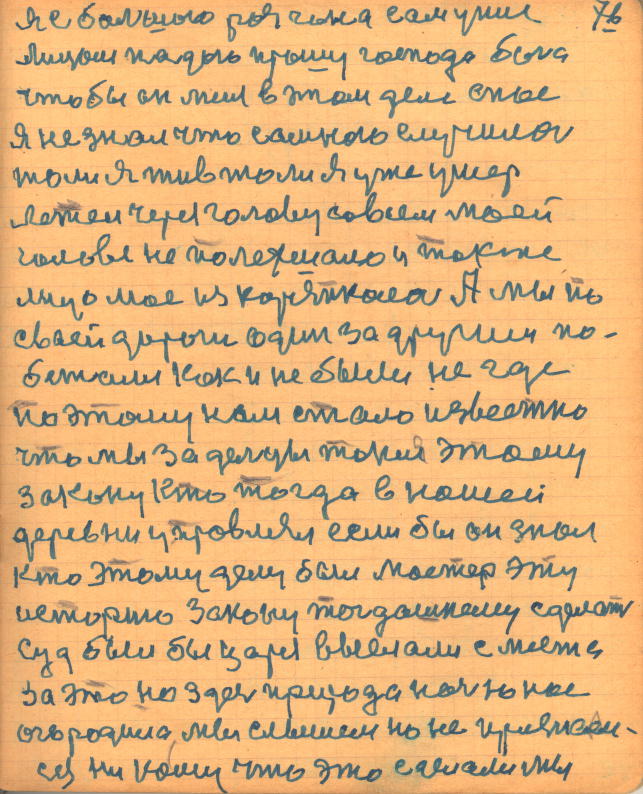 я с большого рягчена сам упил 7б
лицом надою прошу господа бога
чтобы он мня в этом деле спас
Я не знал что самною случилоя
толи я жив толи я уже умер
летел через голову совсем моей
головы не полежмало и также
лицо мое из корятколоя А мы по
своей дороги один за другим по-
бежали Как и не были не где
поэтому нам стало известно
что мы заделцы токия этому
закону Кто тогда в нашей
деревни управлял если бы он знал
кто этому делу были мастер эту
историю закону тогдашнему сделат
суд были бы царя ввыслали с места
за это но здес природа ночю нас
огородила мы слышем но не признаем-
ся ни кому что это сделали мы